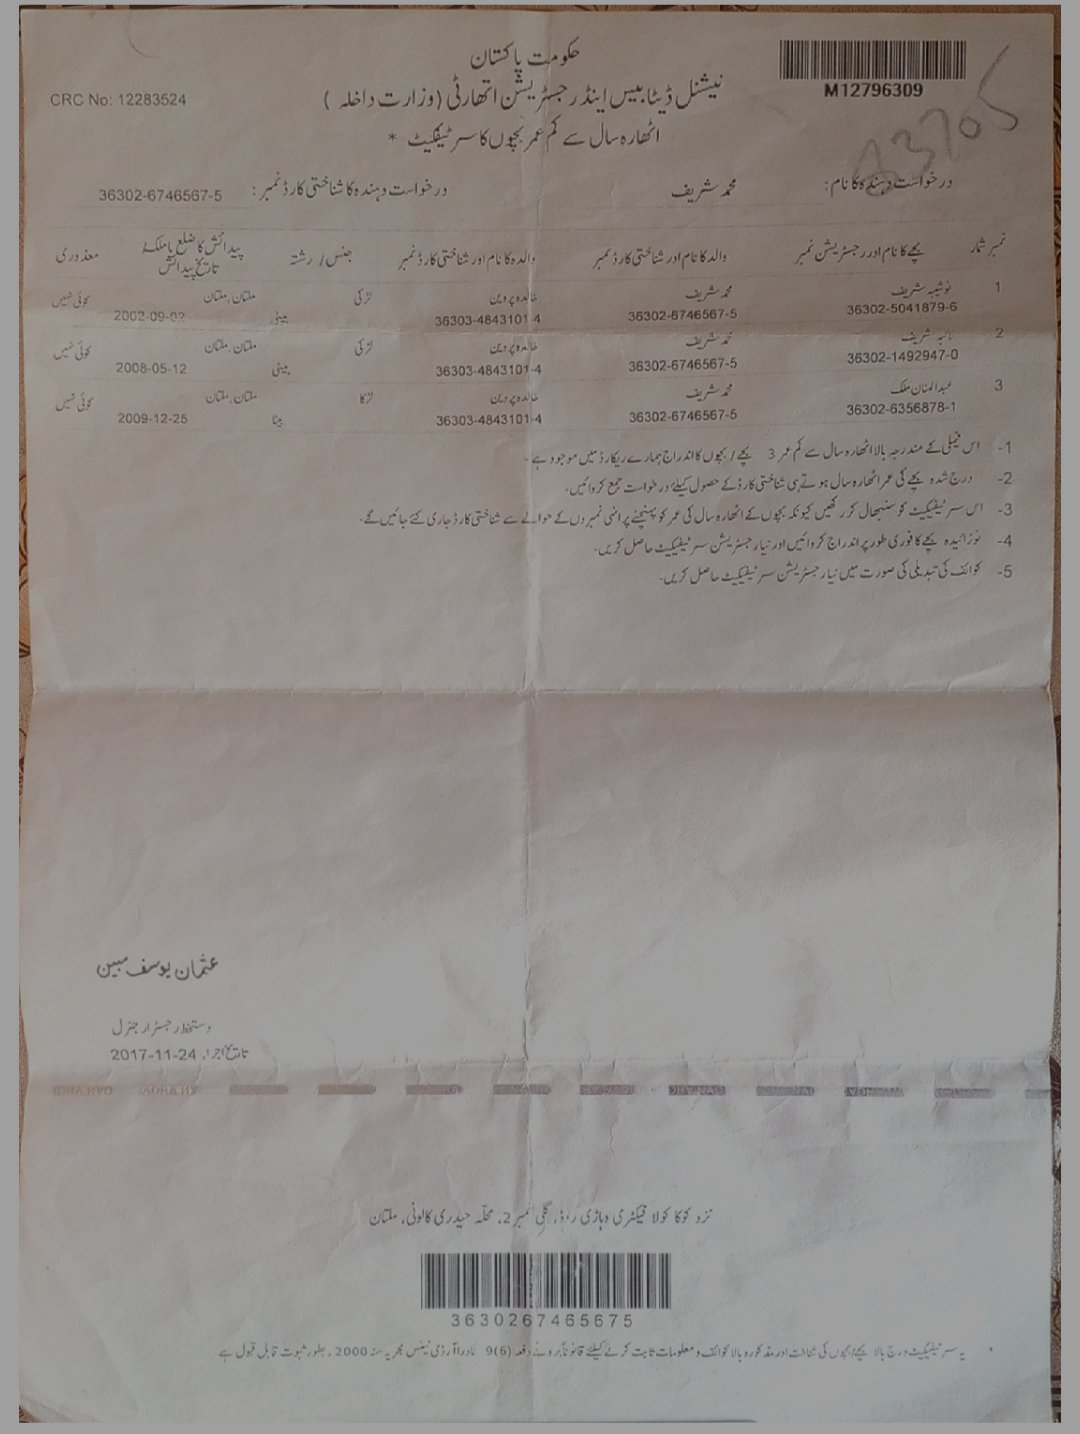 حکومت پاکستان
M12796309
CRC No: 12283524
نیشنل ڈیٹابیس اینڈ رجسٹریشن اتھارٹی (وزارت داخلہ)
اٹھارہ سال سے کم عمر بچوں کا سرٹیفکیٹ *
درخواست دہندہ کا نام: محمد شریف درخواست دہندہ کا شناختی کارڈ نمبر: 36302-6746567-5
نمبر شمار بچے کا نام اور رجسٹریشن نمبر والد کا نام اور شناختی کارڈ نمبر والدہ کا نام اور شناختی کارڈ نمبر جنس / رشتہ پیدائش کا ضلع یا ملک / معذوری
تاریخ پیدائش
1 شریف محمد شریف خالدہ پروین لڑکی ملتان, ملتان کوئی نہیں
36302-5041879-6 36302-6746567-5 36303-4843101-4 بیٹی 2002-09-02
2 شریف محمد شریف خالدہ پروین لڑکی ملتان, ملتان کوئی نہیں
36302-1492947-0 36302-6746567-5 36303-4843101-4 بیٹی 2008-05-12
3 عبدالمنان ملک محمد شریف خالدہ پروین لڑکا ملتان, ملتان کوئی نہیں
36302-6356878-1 36302-6746567-5 36303-4843101-4 بیٹا 2009-12-25
1- اس فیملی کے مندرجہ بالا اٹھارہ سال سے کم عمر 3 بچے / بچوں کا اندراج ہمارے ریکارڈ میں موجود ہے۔
2- درج شدہ بچے کی عمر اٹھارہ سال ہوتے ہی شناختی کارڈ کے حصول کیلئے درخواست جمع کروائیں۔
3- اس سرٹیفیکیٹ کو سنبھال کر رکھیں کیونکہ بچوں کے اٹھارہ سال کی عمر کو پہنچنے پر انہی نمبروں کے حوالے سے شناختی کارڈ جاری کئے جائیں گے۔
4- نوزائیدہ بچے کا فوری طور پر اندراج کروائیں اور نیا رجسٹریشن سرٹیفیکیٹ حاصل کریں۔
5- کوائف کی تبدیلی کی صورت میں نیا رجسٹریشن سرٹیفیکیٹ حاصل کریں۔
عثمان یوسف مبین
دستخط رجسٹرار جنرل
تاریخ اجراء 2017-11-24
نزد کوکا کولا فیکٹری وہاڑی روڈ, گلی نمبر 2, محلہ حیدری کالونی, ملتان
3630267465675
* یہ سرٹیفیکیٹ درج بالا بچے/بچوں کی شناخت اور مذکورہ بالا کوائف و معلومات ثابت کرنے کیلئے قانوناً بروئے دفعہ (6)9 نادرا آرڈی نینس مجریہ سنہ 2000, بطور ثبوت قابل قبول ہے